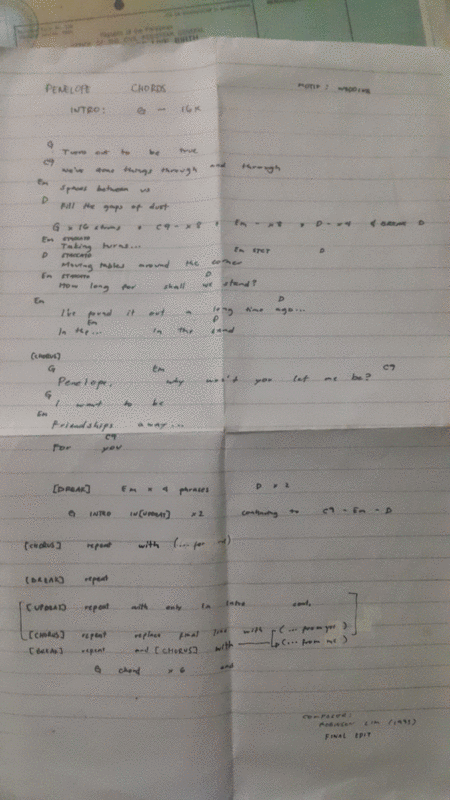 Republic of the Philippines
PENELOPE CHORDS
INTRO: G - 16x
G
Turns out to be true
C9
We've done things through and through
Em
Spaces between us
D
Fill the gaps of dust
G x 16 strums + C9 - x8 + Em - x8 + D - x4 & BREAK D
Em STACCATO Em STAT D
Taking turns...
D STACCATO
Moving tables around the corner
Em STACCATO D
How long for shall we stand?
Em D
I've it out a long time ago...
Em D
In the... in the sand
[CHORUS]
G Em C9
Penelope, why won't you let me be?
G
I want to be
Em
Friendships away...
C9
For you
[BREAK] Em x 4 phrases D x 2
G INTRO x2 continuing to C9 - Em - D
[CHORUS] repeat with (... for me)
[BREAK] repeat
repeat with only 1x intro
[CHORUS] repeat replace final line with (... from you)
[BREAK] repeat and [CHORUS] with (... from me)
G chord x 6 end
COMPOSER:
(1993)
FINAL EDIT